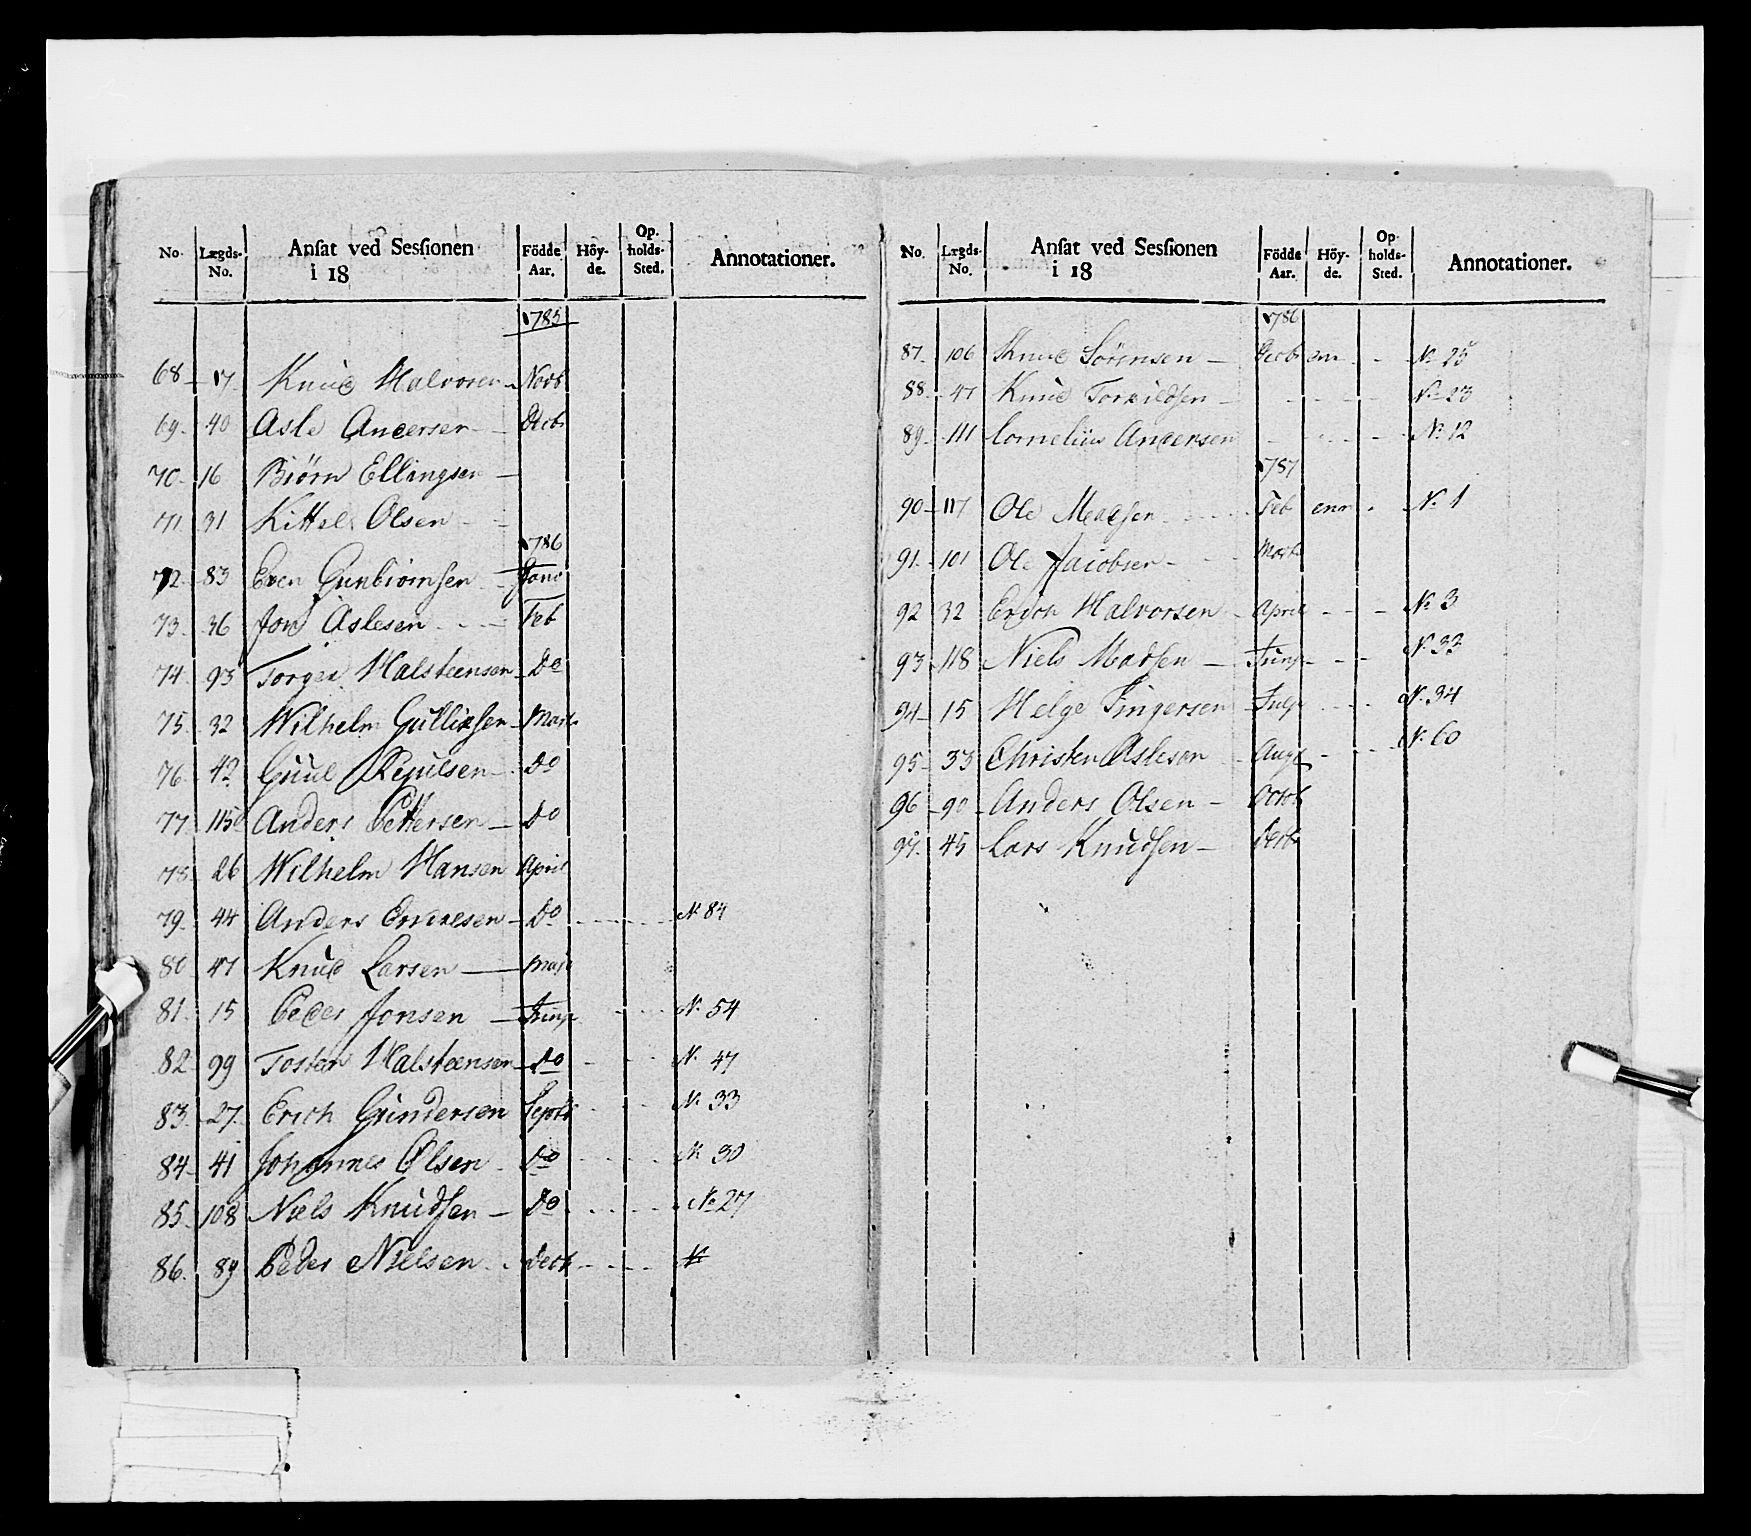 No. Lægds-No. Ansat ved Sessionen i 18 Födde Aar. Höyde. Opholds-Sted. Annotationer.
1785
68 17 Knud Halvorsen Novb
69 40 Asle Andersen Decb
70 16 Biörn Ellingsen
71 31 Kittel Olsen
1786
72 83 Even Gunbiörnsen Janv
73 36 Jon Aslesen Feb
74 93 Torger Halsteensen Do
75 32 Wilhelm Gulliksen Marts
76 42 Guul Do
77 115 Anders Pettersen Do
78 26 Wilhelm Hansen April
79 44 Anders Do No 84
80 47 Knud Larsen Maji
81 15 Peder Jonsen Junj No 54
82 99 Tosten Halsteensen Do No 47
83 27 Erich Gundersen Septb No 33
84 41 Johannes Olsen Do No 30
85 108 Niels Knudsen Do No 27
86 89 Peder Nielsen Decb No
No. Lægds-No. Ansat ved Sessionen i 18 Födde Aar. Höyde. Opholds-Sted. Annotationer.
1786
87 106 Knud Sörensen Decb No 25
88 47 Knud Torkildsen No 23
89 111 Cornelius Andersen No 12
1787
90 117 Ole Madsen Feb No 1
91 101 Ole Jacobsen Marts
92 32 Erich Halvorsen April No 3
93 118 Niels Madsen Junj No 32
94 15 Helge Fingersen Julj No 34
95 33 Christen Asleson Aug No 60
96 90 Anders Olsen Octob
97 45 Lars Knudsen Decb